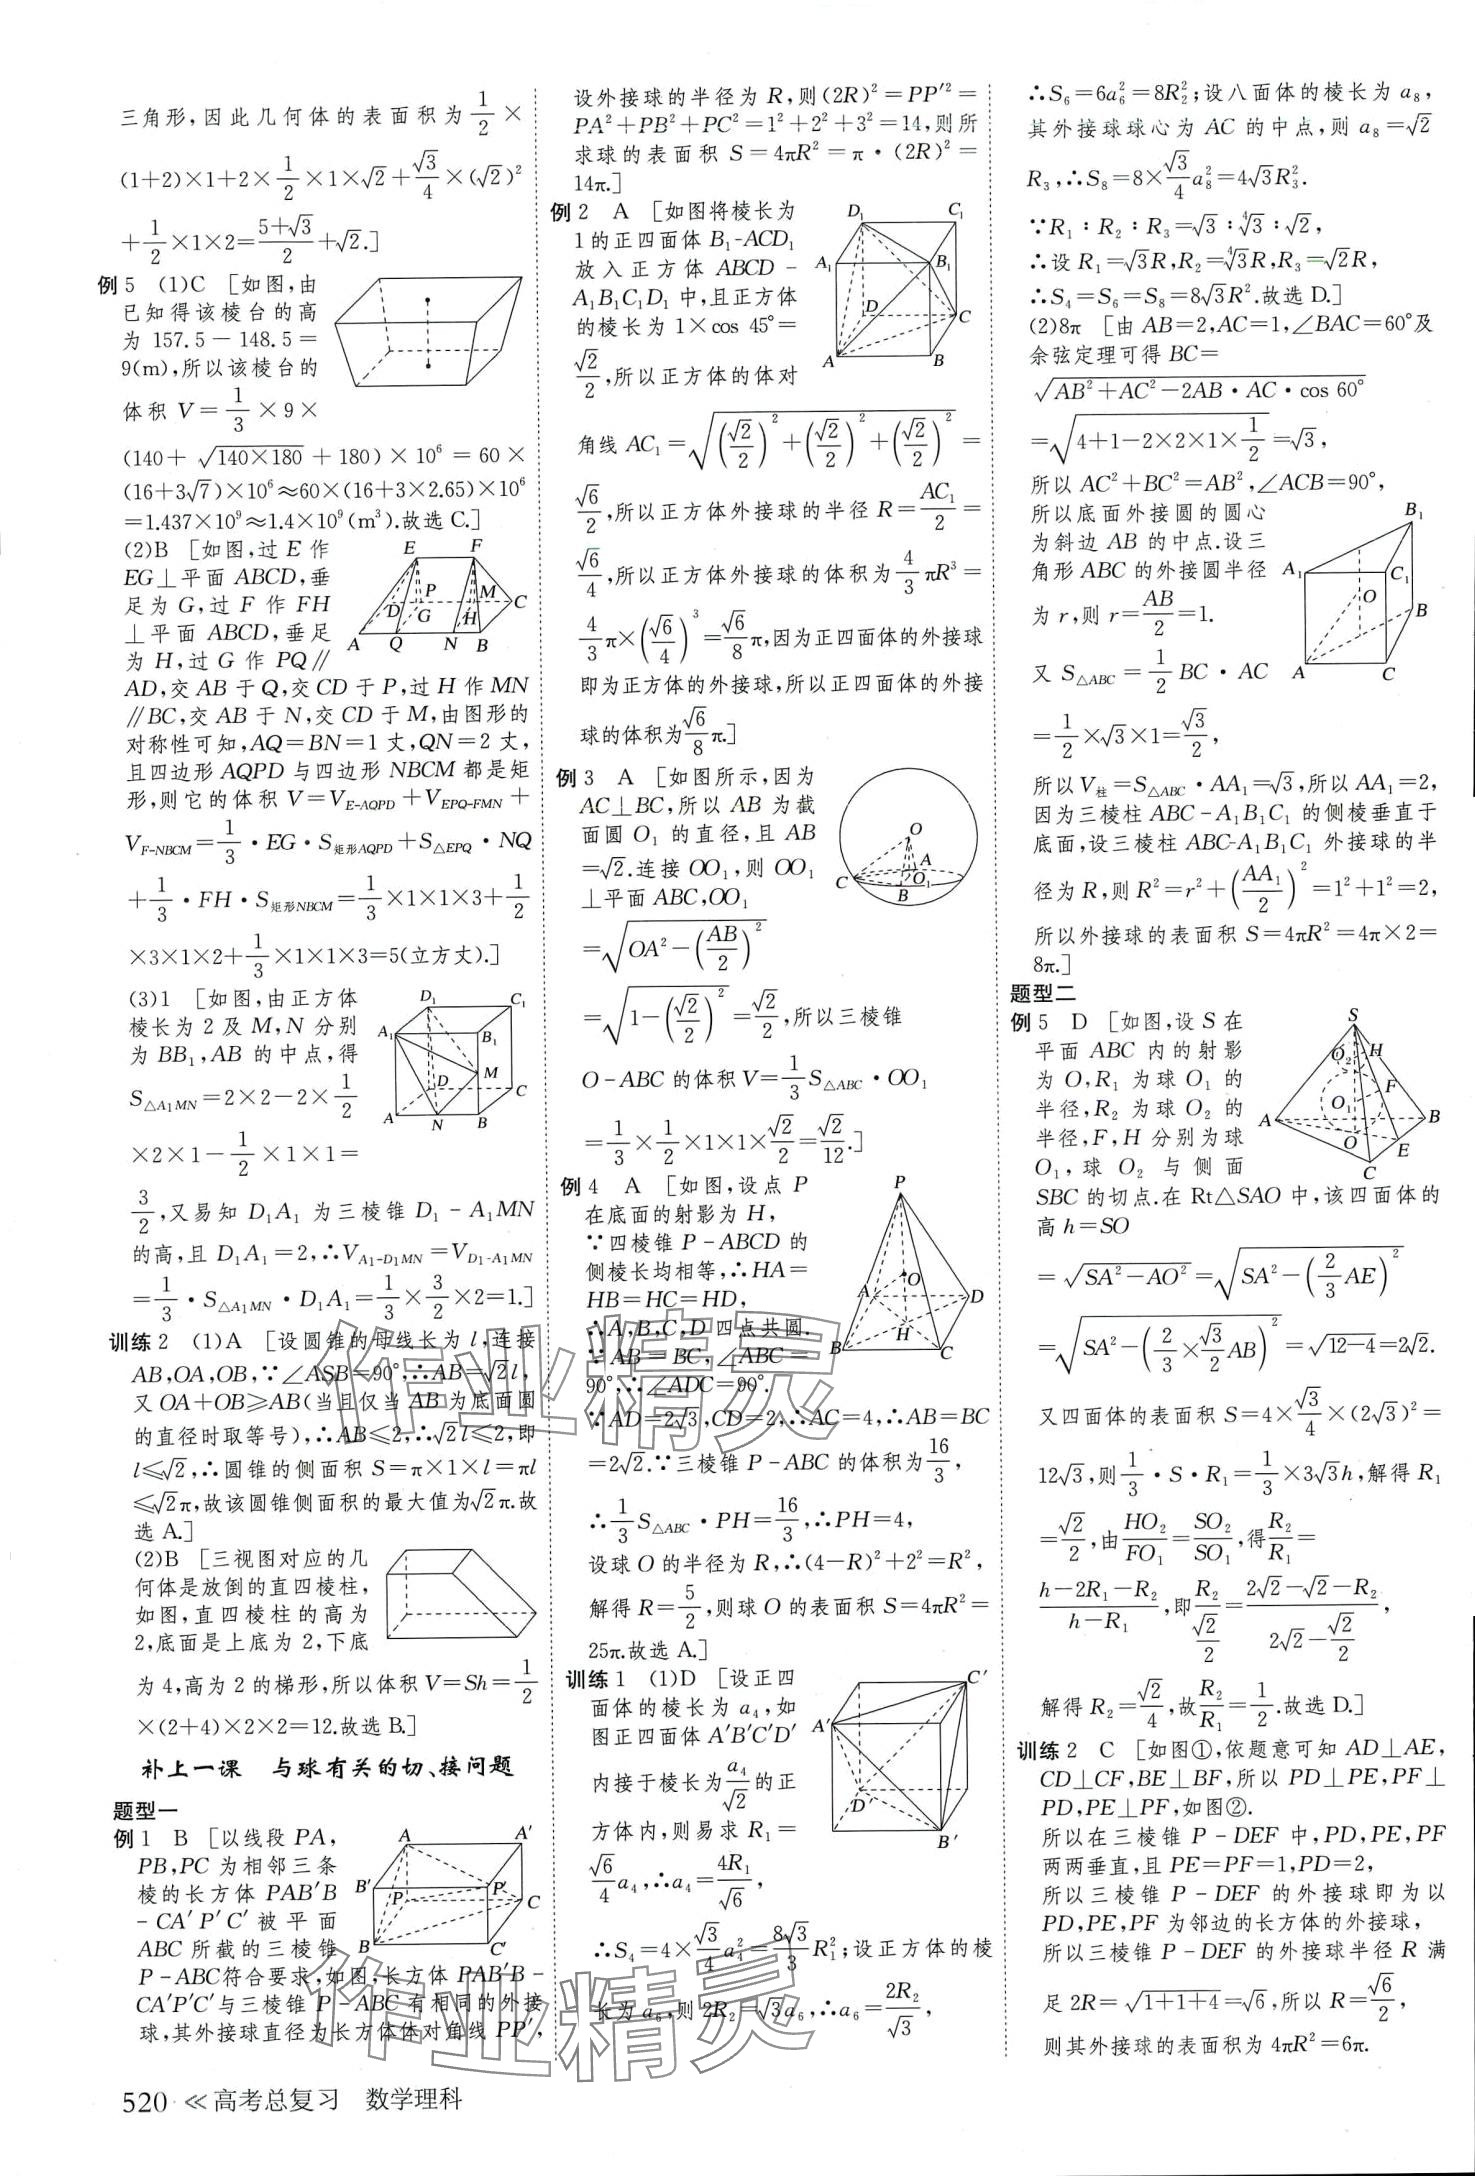 三角形,因此几何体的表面积为1/2×
(1+2)×1+2×1/2×1×√2+√3/4×(√2)²
+1/2×1×2=(5+√3)/2+√2.]
例5 (1)C [如图,由
已知得该棱台的高
为157.5-148.5=
9(m),所以该棱台的
体积V=1/3×9×
(140+√(140×180)+180)×10⁶=60×
(16+3√7)×10⁶≈60×(16+3×2.65)×10⁶
=1.437×10⁹≈1.4×10⁹(m³).故选C.]
(2)B [如图,过E作
EG⊥平面ABCD,垂
足为G,过F作FH
⊥平面ABCD,垂足
为H,过G作PQ∥
AD,交AB于Q,交CD于P,过H作MN
∥BC,交AB于N,交CD于M,由图形的
对称性可知,AQ=BN=1丈,QN=2丈,
且四边形AQPD与四边形NBCM都是矩
形,则它的体积V=V_{E-AQPD}+V_{EPQ-FMN}+
V_{F-NBCM}=1/3·EG·S_{矩形AQPD}+S_{△EPQ}·NQ
+1/3·FH·S_{矩形NBCM}=1/3×1×1×3+1/2
×3×1×2+1/3×1×1×3=5(立方丈).]
(3)1 [如图,由正方体
棱长为2及M,N分别
为BB₁,AB的中点,得
S_{△A₁MN}=2×2-2×1/2
×2×1-1/2×1×1=
3/2,又易知D₁A₁为三棱锥D₁-A₁MN
的高,且D₁A₁=2,∴V_{A₁-D₁MN}=V_{D₁-A₁MN}
=1/3·S_{△A₁MN}·D₁A₁=1/3×3/2×2=1.]
训练2 (1)A [设圆锥的母线长为l,连接
AB,OA,OB,∵∠ASB=90°,∴AB=√2l,
又OA+OB≥AB(当且仅当AB为底面圆
的直径时取等号),∴AB≤2,∴√2l≤2,即
l≤√2,∴圆锥的侧面积S=π×1×l=πl
≤√2π,故该圆锥侧面积的最大值为√2π.故
选A.]
(2)B [三视图对应的几
何体是放倒的直四棱柱,
如图,直四棱柱的高为
2,底面是上底为2,下底
为4,高为2的梯形,所以体积V=Sh=1/2
×(2+4)×2×2=12.故选B.]
补上一课 与球有关的切、接问题
题型一
例1 B [以线段PA,
PB,PC为相邻三条
棱的长方体PAB′B
-CA′P′C′被平面
ABC所截的三棱锥
P-ABC符合要求,如图,长方体PAB′B-
CA′P′C′与三棱锥P-ABC有相同的外接
球,其外接球直径为长方体体对角线PP′,
设外接球的半径为R,则(2R)²=PP′²=
PA²+PB²+PC²=1²+2²+3²=14,则所
求球的表面积S=4πR²=π·(2R)²=
14π.]
例2 A [如图将棱长为
1的正四面体B₁-ACD₁
放入正方体ABCD-
A₁B₁C₁D₁中,且正方体
的棱长为1×cos 45°=
√2/2,所以正方体的体对
角线AC₁=√((√2/2)²+(√2/2)²+(√2/2)²)=
√6/2,所以正方体外接球的半径R=AC₁/2=
√6/4,所以正方体外接球的体积为4/3πR³=
4/3π×(√6/4)³=√6/8π,因为正四面体的外接球
即为正方体的外接球,所以正四面体的外接
球的体积为√6/8π.]
例3 A [如图所示,因为
AC⊥BC,所以AB为截
面圆O₁的直径,且AB
=√2.连接OO₁,则OO₁
⊥平面ABC,OO₁
=√(OA²-(AB/2)²)
=√(1-(√2/2)²)=√2/2,所以三棱锥
O-ABC的体积V=1/3S_{△ABC}·OO₁
=1/3×1/2×1×1×√2/2=√2/12.]
例4 A [如图,设点P
在底面的射影为H,
∵四棱锥P-ABCD的
侧棱长均相等,∴HA=
HB=HC=HD,
∴A,B,C,D四点共圆.
∵AB=BC,∠ABC=
90°,∴∠ADC=90°.
∵AD=2√3,CD=2,∴AC=4,∴AB=BC
=2√2.∵三棱锥P-ABC的体积为16/3,
∴1/3S_{△ABC}·PH=16/3,∴PH=4,
设球O的半径为R,∴(4-R)²+2²=R²,
解得R=5/2,则球O的表面积S=4πR²=
25π.故选A.]
训练1 (1)D [设正四
面体的棱长为a₄,如
图正四面体A′B′C′D′
内接于棱长为a₄/√2的正
方体内,则易求R₁=
√6/4a₄,∴a₄=4R₁/√6,
∴S₄=4×√3/4a₄²=8√3/3R₁²;设正方体的棱
长为a₆,则2R₂=√3a₆,∴a₆=2R₂/√3,
∴S₆=6a₆²=8R₂²;设八面体的棱长为a₈,
其外接球球心为AC的中点,则a₈=√2
R₃,∴S₈=8×√3/4a₈²=4√3R₃².
∵R₁∶R₂∶R₃=√3∶⁴√3∶√2,
∴设R₁=√3R,R₂=⁴√3R,R₃=√2R,
∴S₄=S₆=S₈=8√3R².故选D.]
(2)8π [由AB=2,AC=1,∠BAC=60°及
余弦定理可得BC=
√(AB²+AC²-2AB·AC·cos 60°)
=√(4+1-2×2×1×1/2)=√3,
所以AC²+BC²=AB²,∠ACB=90°,
所以底面外接圆的圆心
为斜边AB的中点.设三
角形ABC的外接圆半径
为r,则r=AB/2=1.
又S_{△ABC}=1/2BC·AC
=1/2×√3×1=√3/2,
所以V柱=S_{△ABC}·AA₁=√3,所以AA₁=2,
因为三棱柱ABC-A₁B₁C₁的侧棱垂直于
底面,设三棱柱ABC-A₁B₁C₁外接球的半
径为R,则R²=r²+(AA₁/2)²=1²+1²=2,
所以外接球的表面积S=4πR²=4π×2=
8π.]
题型二
例5 D [如图,设S在
平面ABC内的射影
为O,R₁为球O₁的
半径,R₂为球O₂的
半径,F,H分别为球
O₁,球O₂与侧面
SBC的切点.在Rt△SAO中,该四面体的
高h=SO
=√(SA²-AO²)=√(SA²-(2/3AE)²)
=√(SA²-(2/3×√3/2AB)²)=√(12-4)=2√2.
又四面体的表面积S=4×√3/4×(2√3)²=
12√3,则1/3·S·R₁=1/3×3√3h,解得R₁
=√2/2,由HO₂/FO₁=SO₂/SO₁,得R₂/R₁=
(h-2R₁-R₂)/(h-R₁),即R₂/(√2/2)=(2√2-√2-R₂)/(2√2-√2/2),
解得R₂=√2/4,故R₂/R₁=1/2.故选D.]
训练2 C [如图①,依题意可知AD⊥AE,
CD⊥CF,BE⊥BF,所以PD⊥PE,PF⊥
PD,PE⊥PF,如图②.
所以在三棱锥P-DEF中,PD,PE,PF
两两垂直,且PE=PF=1,PD=2,
所以三棱锥P-DEF的外接球即为以
PD,PE,PF为邻边的长方体的外接球,
所以三棱锥P-DEF的外接球半径R满
足2R=√(1+1+4)=√6,所以R=√6/2,
则其外接球的表面积为4πR²=6π.
520 ≪高考总复习 数学理科
作业精灵
作业精灵